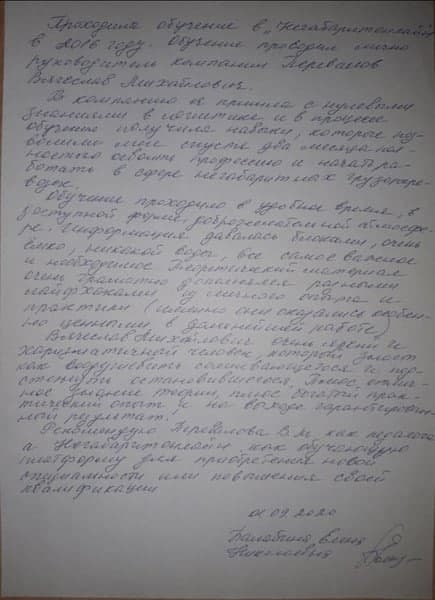 Проходила обучение в „Негабаритонлайн"
в 2016 году. Обучение проводил лично
руководитель компании Перевалов
Вячеслав Михайлович.
В компанию я пришла с нулевыми
знаниями в логистике и в процессе
обучения получила навыки, которые поз-
волили мне спустя два месяца пол-
ностью освоить профессию и начать ра-
ботать в сфере негабаритных грузопере-
возок.
Обучение проходило в удобное время, в
доступной форме, доброжелательной атмосфе-
ре. Информация давалась блоками, очень
ёмко, никакой воды, все самое важное
и необходимое. Теоретический материал
очень грамотно дополнялся разными
лайфхаками из личного опыта и
практики (именно они оказались особен-
но ценными в дальнейшей работе)
Вячеслав Михайлович очень
харизматичный человек, который умеет
как воодушевить сомневающегося и под-
стегнуть остановившегося. Плюс отлич-
ное знание теории, плюс богатый прак-
тический опыт и на выходе гарантирован-
ный результат!
Рекомендую Перевалова В.М. как педагога,
а Негабаритонлайн как обучающую
платформу для приобретения новой
специальности или повышения своей
квалификации
01.09.2020
Балабкина Елена
Николаевна